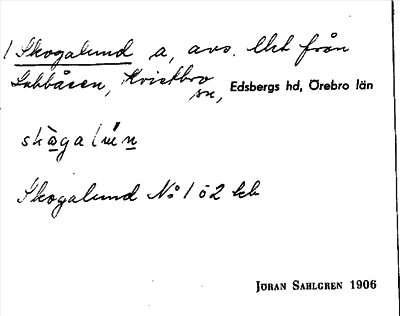 1 Skogalund a, avs. lht från
Labbåsen, Kvistbro sn, Edsbergs hd, Örebro län
skògalún
Skogalund No 1 ö2 kb
JÖRAN SAHLGREN 1906